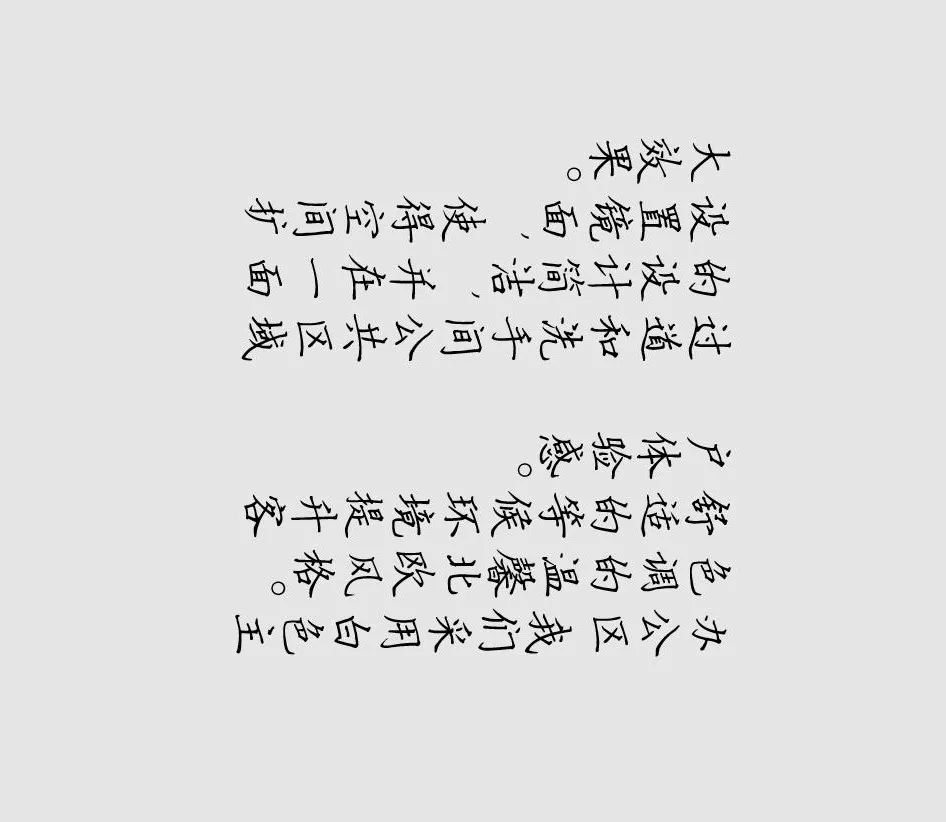 办公区 我们采用白色主
色调的温馨北欧风格。
舒适的等候环境提升客
户体验感。
过道和洗手间公共区域
的设计简洁，并在一面
设置镜面，使得空间扩
大效果。